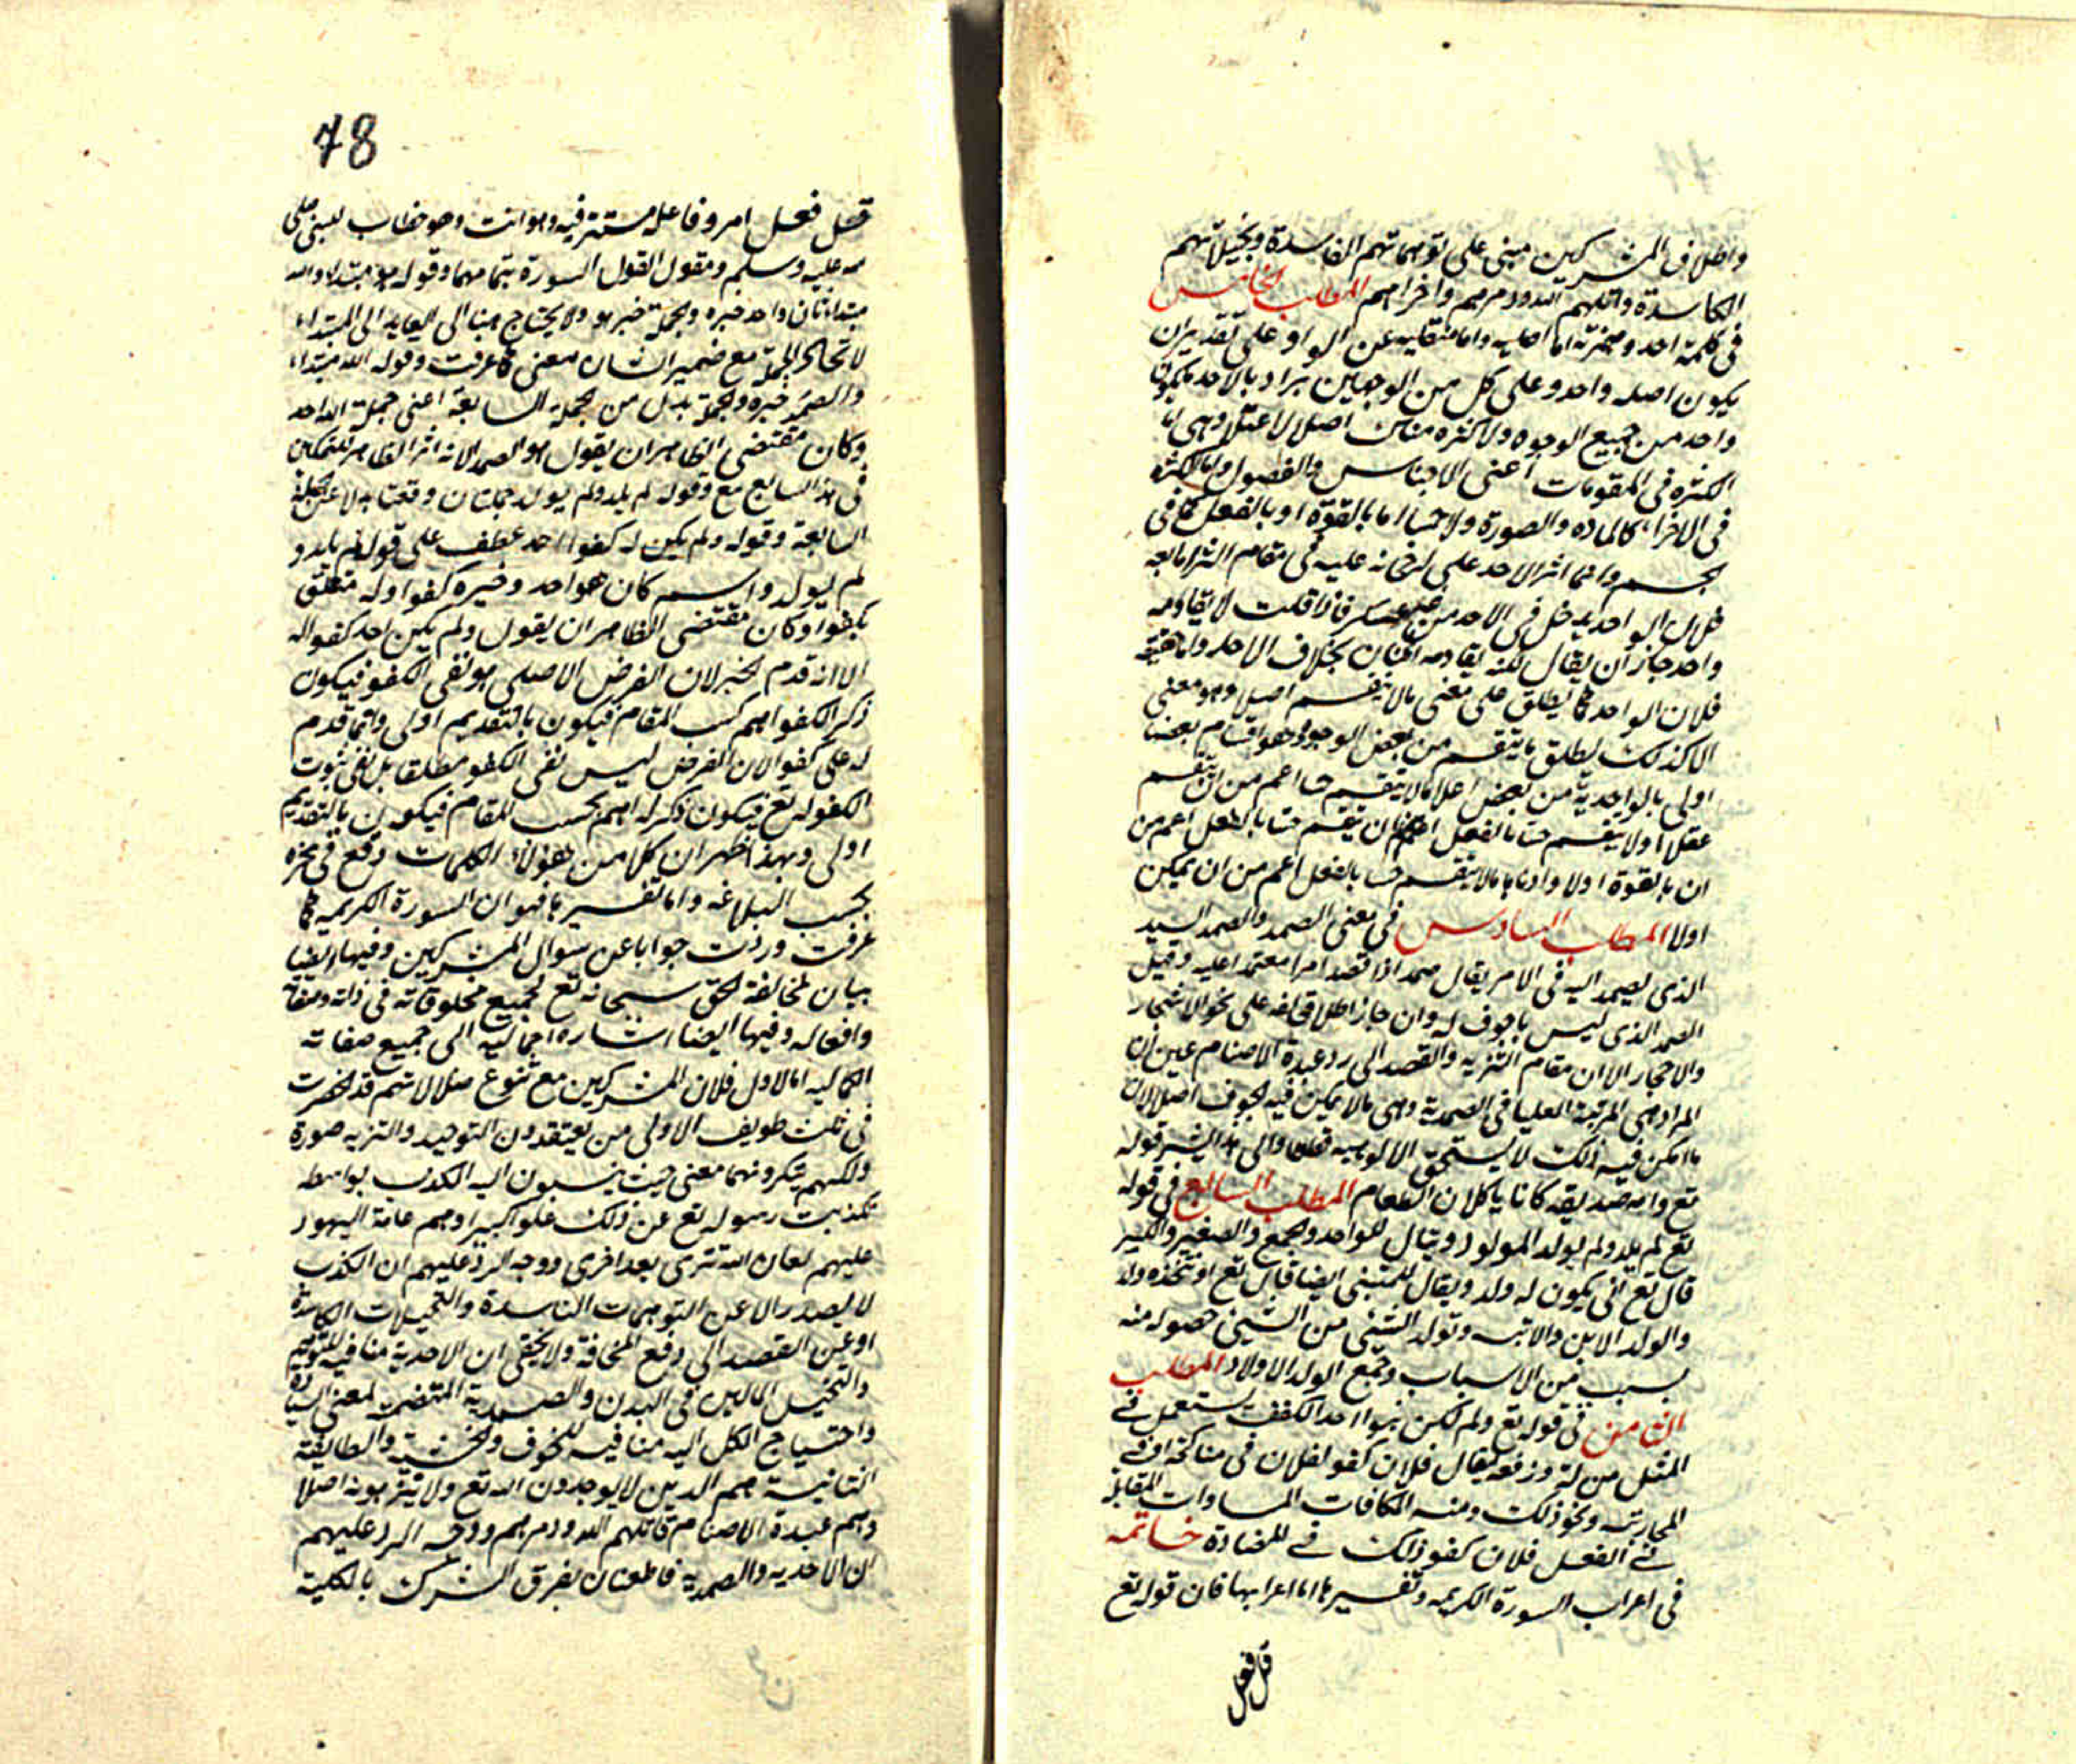 واطلاق المشركين مبنى على توهماتهم الفاسدة وتخيلاتهم
الكاسدة قاتلهم الله ودمرهم واخزاهم المطلب الخامس
فى كلمة احد وهمزته اما اصليه واما منقلبه عن الواو على تقدير ان
يكون اصله واحد وعلى كل من الوجهين يراد بالاحد ما يكون
واحد من جميع الوجوه ولا كثره هناك اصلا لا عقلا وهى اما
الكثره فى المقومات اعنى الاجناس والفصول واما الكثره
فى الاجزاء كالماده والصورة ولا حسا اما بالقوة او بالفعل كما فى
الجسم وانما اثر الاحد على لرجحانه عليه فى مقام التنزيه
فلان الواحد يدخل فى الاحد من غير عكس فاذا قلت لا يقاومه
واحد جاز ان يقال لكنه يقاومه اثنان بخلاف الاحد واما حقيقة
فلان الواحد كما يطلق على معنى ما لا ينقسم اصلا وهو معنى
الاحد كذلك يطلق ما ينقسم من بعض الوجوه وهو اقسام بعضها
اولى بالواحدية من بعض اعلاها ما لا ينقسم حسا اعم من ان ينقسم
عقلا اولا ينقسم حسا بالفعل اعم من ان ينقسم حسا بالفعل اعم من
ان بالقوة اولا وادناها ما لا ينقسم حسا بالفعل اعم من ان يمكن
اولا المطلب السادس فى معنى الصمد والصمد السيد
الذى يصمد اليه فى الامر يقال صمد اذا قصد امرا معتمدا عليه وقيل
الصمد الذى ليس باجوف له وان جاز اطلاق لغة على نحو الاشجار
والاحجار الا ان مقام التنزيه والقصد الى رد عبدة الاصنام عين ان
المراد هى المرتبة العليا فى الصمدية وهى ما لا يمكن فيه الجوف اصلا لان
ما امكن فيه ذلك لا يستحق الالوهيه قطعا والى هذا اشير قوله
تع وامه صديقه كانا ياكلان الطعام المطلب السابع فى قوله
تع لم يلد ولم يولد المولود ويقال للواحد والجمع والصغير والكبير
قال تع انى يكون له ولد ويقال للمتبنى ايضا قال تع او نتخذه ولدا
والولد الابن والابنه وتولد الشئ من الشئ حصوله منه
بسبب من الاسباب وجمع الولد الاولاد المطلب
الثامن فى قوله تع ولم يكن له كفوا احد الكفو يستعمل فى
المثل منزلة ورفعه يقال فلان كفو لفلان فى مناكحة او فى
المحاربه ونحو ذلك ومنه المكافات المساوات المقابلة
فى الفعل فلان كفو ذلك فى المضادة خاتمه
فى اعراب السورة الكريمه وتفسيرها اما اعرابها فان قوله تع
قل فعل
78
قل فعل امر وفاعله مستتر فيه وهو انت وهو خطاب للنبى صلى
الله عليه وسلم ومقول القول السورة بتمامها وقوله هو مبتداء والله
مبتداء ثان واحد خبره والجملة خبر هو ولا يحتاج هنا الى العايد الى المبتداء
لاتحاد الجملة مع ضمير الشان معنى كما عرفت وقوله الله مبتداء
والصمد خبره والجملة بدل من الجملة السابقة اعنى جملة الله احد
وكان مقتضى الظاهر ان يقول هو الصمد الا انه اثر الظاهر للتمكين
فى ذهن السامع مع وقوله لم يلد ولم يولد جملتان وقعتا بدلا عن الجملة
السابقة وقوله ولم يكن له كفوا احد عطف على قوله لم يلد و
لم يولد واسم كان هو احد وخبره كفوا وله متعلق
بكفوا وكان مقتضى الظاهر ان يقول ولم يكن احد كفوا له
الا انه قدم الخبر لان الغرض الاصلى هو نفى الكفو فيكون
ذكر الكفو اهم بحسب المقام فيكون بالتقديم اولى وانما قدم
له على كفوا لان الغرض ليس نفى الكفو مطلقا بل نفى ثبوت
الكفو له تع فيكون ذكر له اهم بحسب المقام فيكون بالتقديم
اولى وبهذا ظهر ان كلا من هؤلاء الكلمات وقع فى محزه
بحسب البلاغه واما تفسيرها فهو ان السورة الكريمه كما
عرفت وردت جوابا عن سوال المشركين وفيها ايضا
بيان لمخالفة الحق سبحانه تع لجميع مخلوقاته فى ذاته وصفاته
وافعاله وفيها ايضا اشاره اجماليه الى جميع صفاته
الكماليه اما الاول فلان المشركين مع تنوع ضلالاتهم قد انحصرت
فى ثلث طوايف الاولى من يعتقدون التوحيد والتنزيه صورة
ولكنهم ينكرونهما معنى حيث ينسبون اليه الكذب بواسطه
تكذيب رسوله تع عن ذلك علوا كبيرا وهم عامة اليهود
عليهم لعان الله تترى بعد اخرى ووجه الرد عليهم ان الكذب
لا يصدر الا عن التوهمات الفاسدة والتخيلات الكاسدة
او عن القصد الى دفع المخافة ولا يخفى ان الاحدية منافية للتوهم
والتخيل الحالين فى البدن والصمدية المتضمنة لمعنى السيادة
واحتياج الكل اليه منافيه للخوف والخشيه والطايفة
الثانية هم الذين لا يوحدون الله تع ولا يقربونه اصلا
وهم عبدة الاصنام قاتلهم الله ودمرهم ووجه الرد عليهم
ان الاحديه والصمديه قاطعتان بفرق الشرك بالكلية